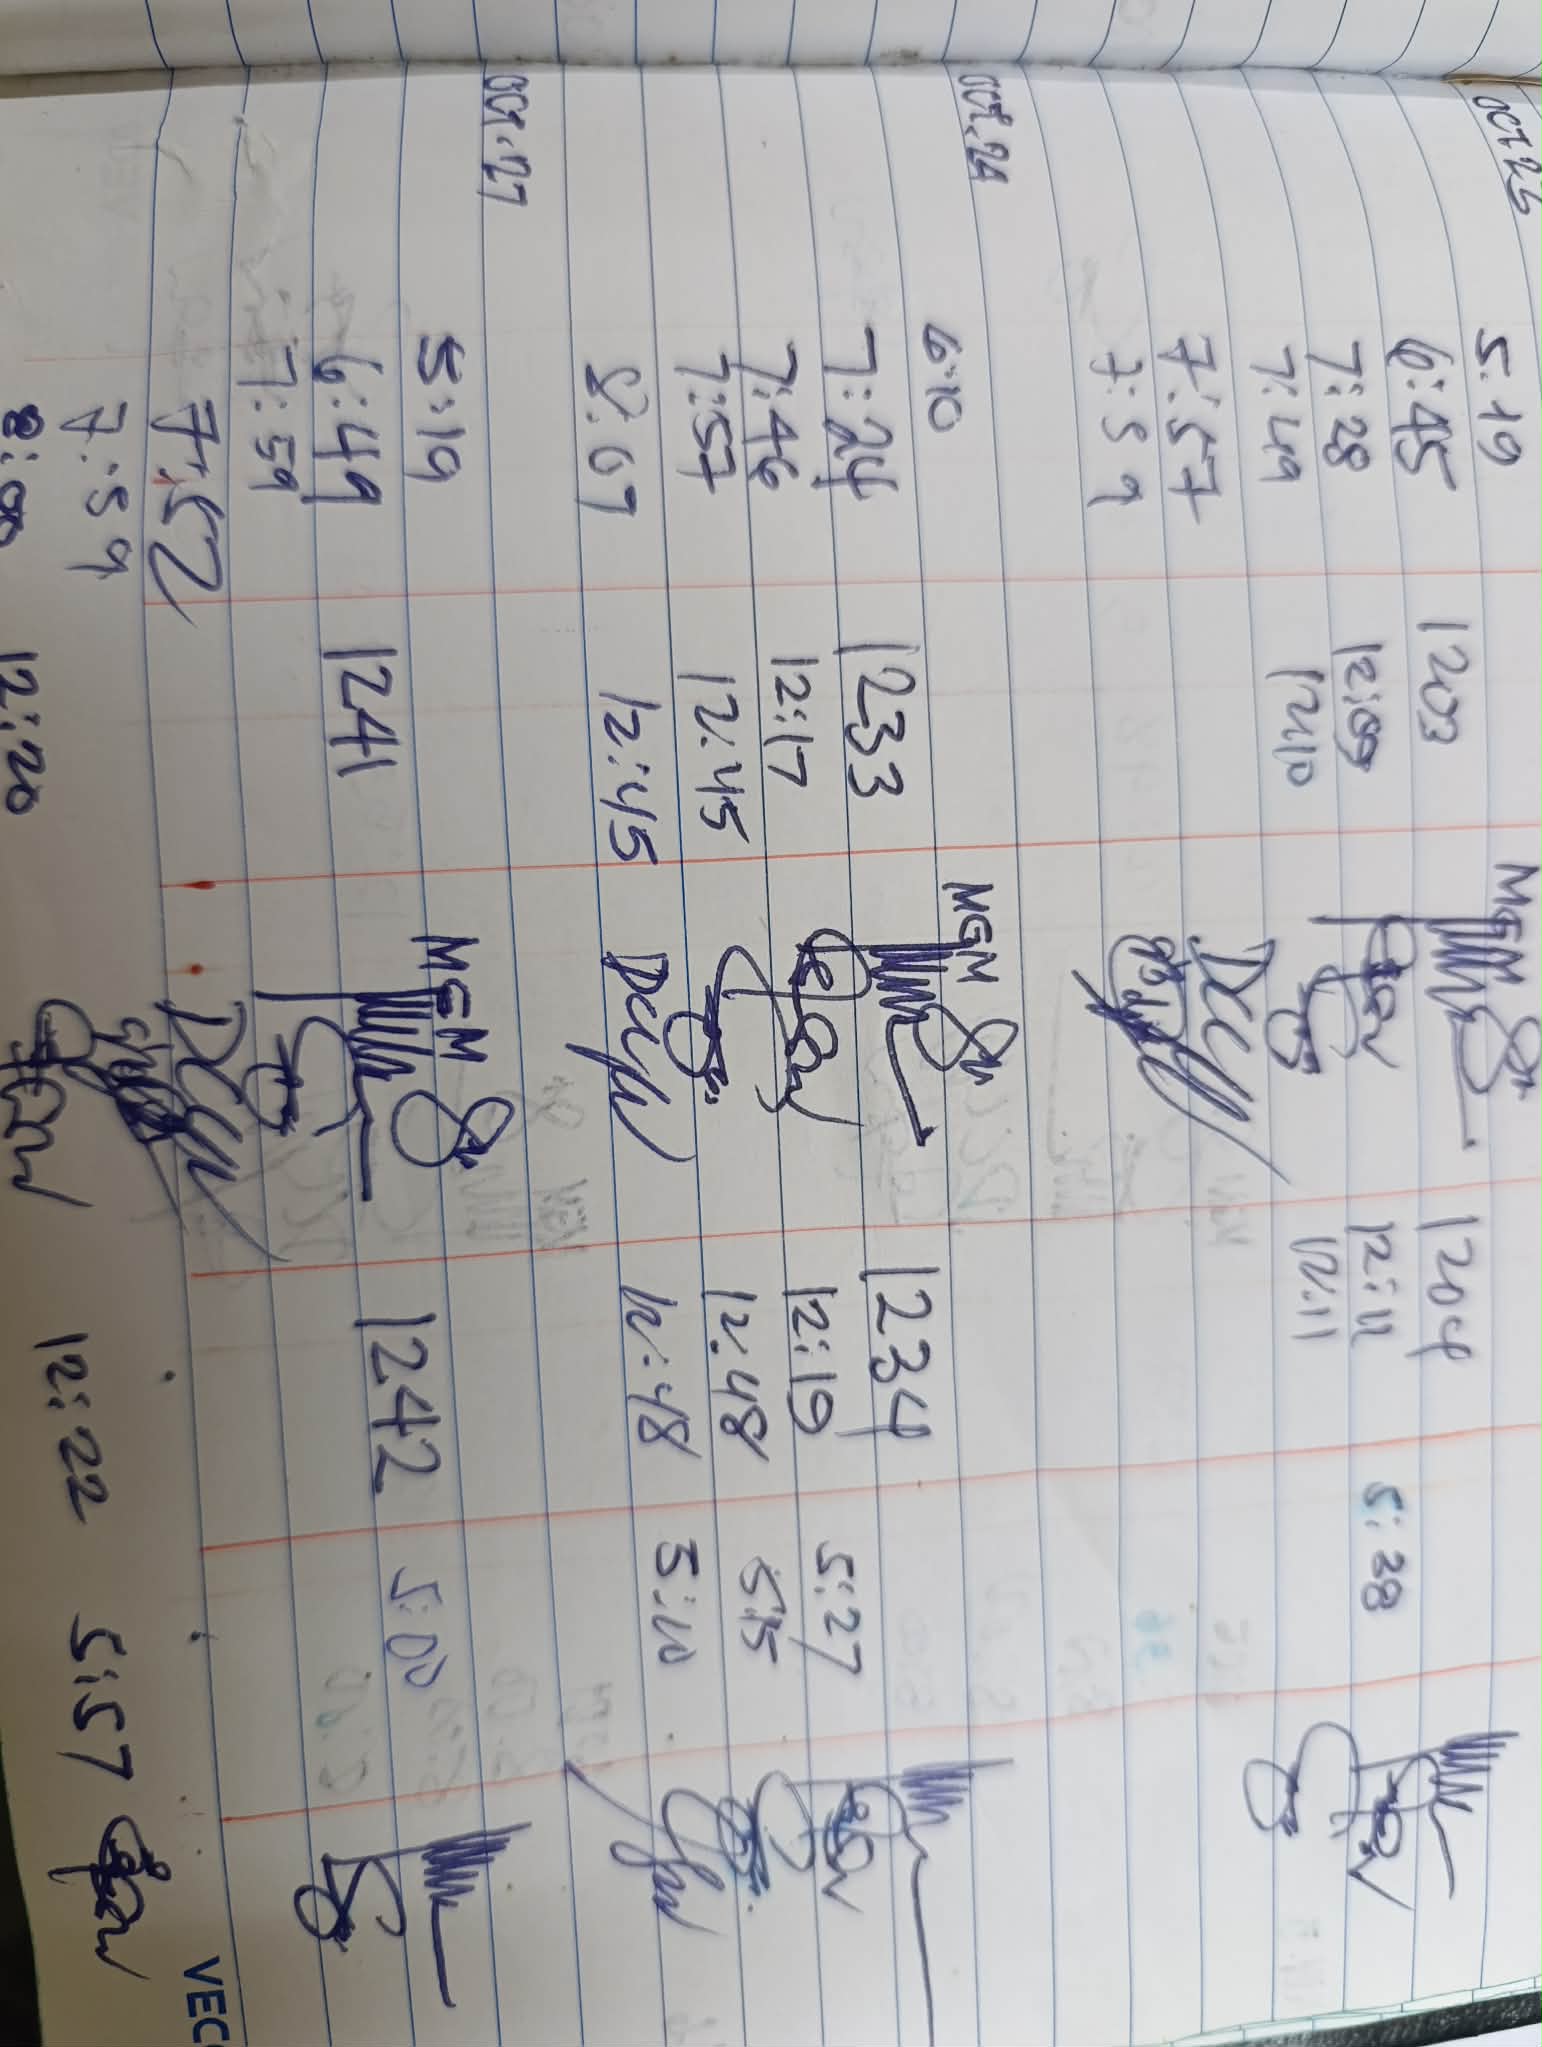 OCT 23
5:19 MGM
6:45 1203 1204
7:28 12:09 12:11 5:38
7:49 12:10 12:11
7:57
7:59
OCT. 24
6:10 MGM
7:24 1233 1234
7:46 12:17 12:19 5:27
7:57 12:45 12:48 5:15
8:07 12:45 12:48 5:10
OCT. 27
5:19 MGM
6:49 1241 1242 5:00
7:59
7:52
7:59
8:00 12:20 12:22 5:57
VEC